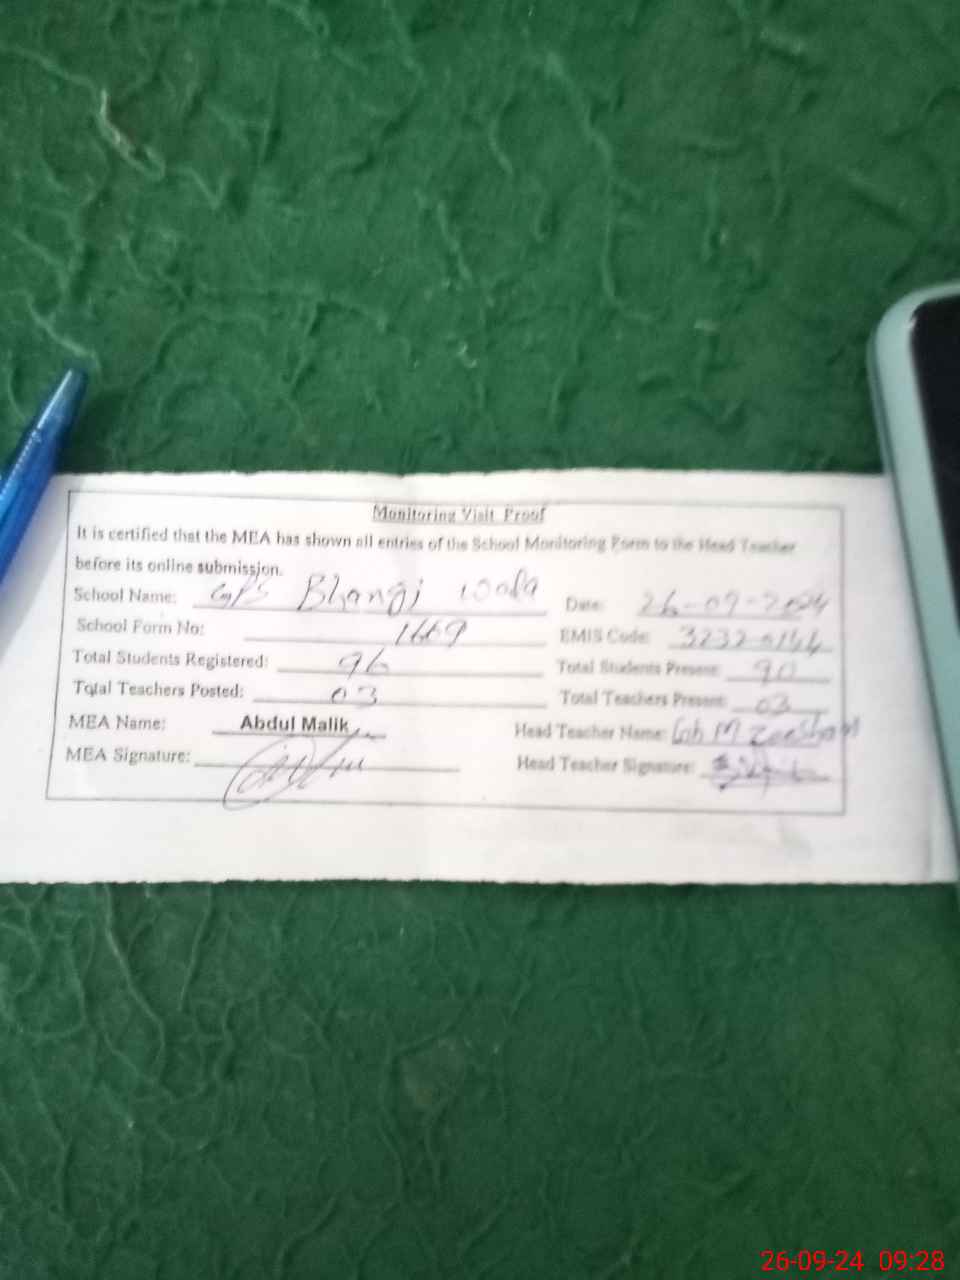 Monitoring Visit Proof
It is certified that the MEA has shown all entries of the School Monitoring Form to the Head Teacher
before its online submission.
School Name: GPS Bhangi Date: 26-09-2024
School Form No: 1669 EMIS Code: 32320144
Total Students Registered: 96 Total Students Present: 90
Total Teachers Posted: 03 Total Teachers Present: 03
MEA Name: Abdul Malik Head Teacher Name: M Zeeshan
MEA Signature: Head Teacher Signature:
26-09-24 09:28